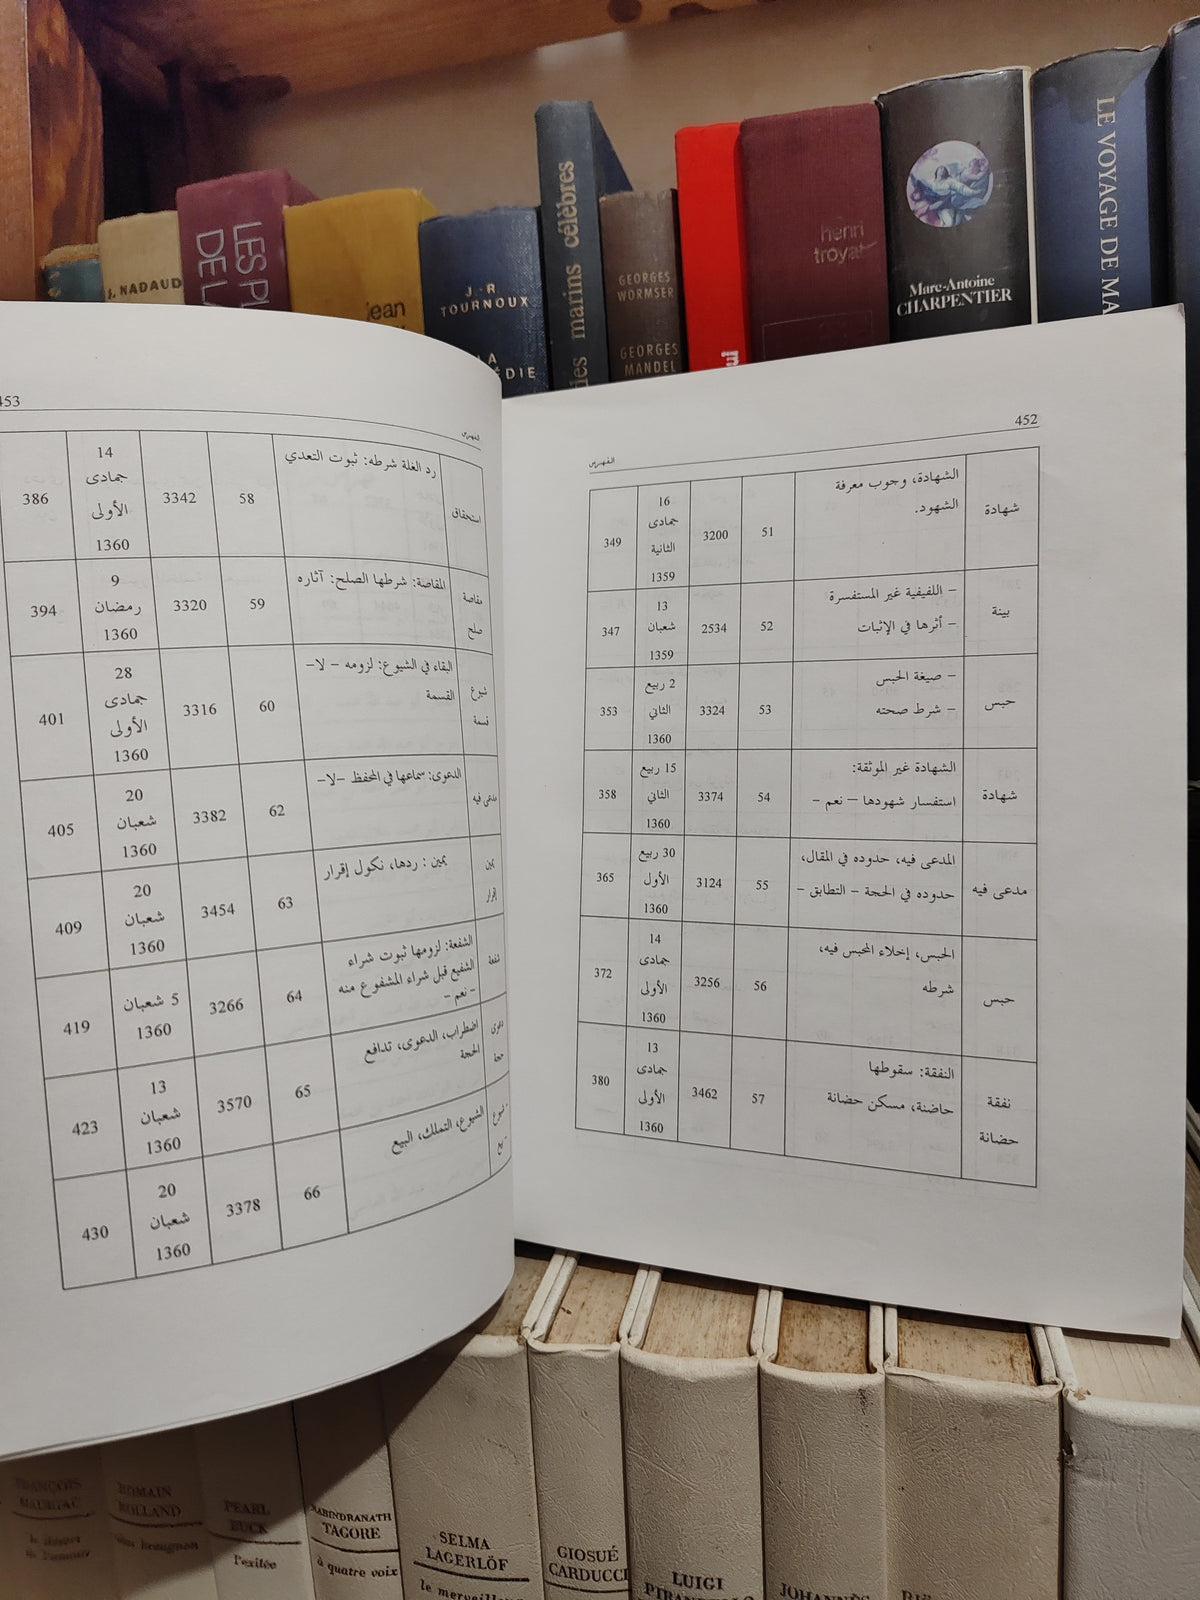 J. NADAUD
LES
DE L
jean
J.-R
TOURNOUX
LA
des marins célèbres
GEORGES
WORMSER
GEORGES
MANDEL
henri
troyat
Marc-Antoine
CHARPENTIER
LE VOYAGE DE
452
الفهرس
شهادة
الشهادة، وجوب معرفة
الشهود.
51
3200
16
جمادى
الثانية
1359
349
بينة
– اللفيفية غير المستفسرة
– أثرها في الإثبات
52
2534
13
شعبان
1359
347
حبس
– صيغة الحبس
– شرط صحته
53
3324
2 ربيع
الثاني
1360
353
شهادة
الشهادة غير الموثقة:
استفسار شهودها – نعم –
54
3374
15 ربيع
الثاني
1360
358
مدعى فيه
المدعى فيه، حدوده في المقال،
حدوده في الحجة – التطابق –
55
3124
30 ربيع
الأول
1360
365
حبس
الحبس، إخلاء المحبس فيه،
شرطه
56
3256
14
جمادى
الأولى
1360
372
نفقة
حضانة
النفقة: سقوطها
حاضنة، مسكن حضانة
57
3462
13
جمادى
الأولى
1360
380
453
الفهرس
استحقاق
رد الغلة شرطه: ثبوت التعدي
58
3342
14
جمادى
الأولى
1360
386
مقاصة
صلح
المقاصة: شرطها الصلح: آثاره
59
3320
9
رمضان
1360
394
شيوع
قسمة
البقاء في الشيوع: لزومه – لا–
القسمة
60
3316
28
جمادى
الأولى
1360
401
مدعى فيه
الدعوى: سماعها في المحفظ –لا–
62
3382
20
شعبان
1360
405
يمين
إقرار
يمين : ردها، نكول إقرار
63
3454
20
شعبان
1360
409
شفعة
الشفعة: لزومها ثبوت شراء
الشفيع قبل شراء المشفوع منه
– نعم –
64
3266
5 شعبان
1360
419
دعوى
حجة
اضطراب، الدعوى، تدافع
الحجة
65
3570
13
شعبان
1360
423
- شيوع
- بيع
الشيوع، التملك، البيع
66
3378
20
شعبان
1360
430
FRANÇOIS
MAURIAC
le désert
de l'amour
ROMAIN
ROLLAND
PEARL
BUCK
l'exilée
RABINDRANATH
TAGORE
à quatre voix
SELMA
LAGERLÖF
le
GIOSUÉ
CARDUCCI
LUIGI
PIRANDELLO
JOHANNÈS